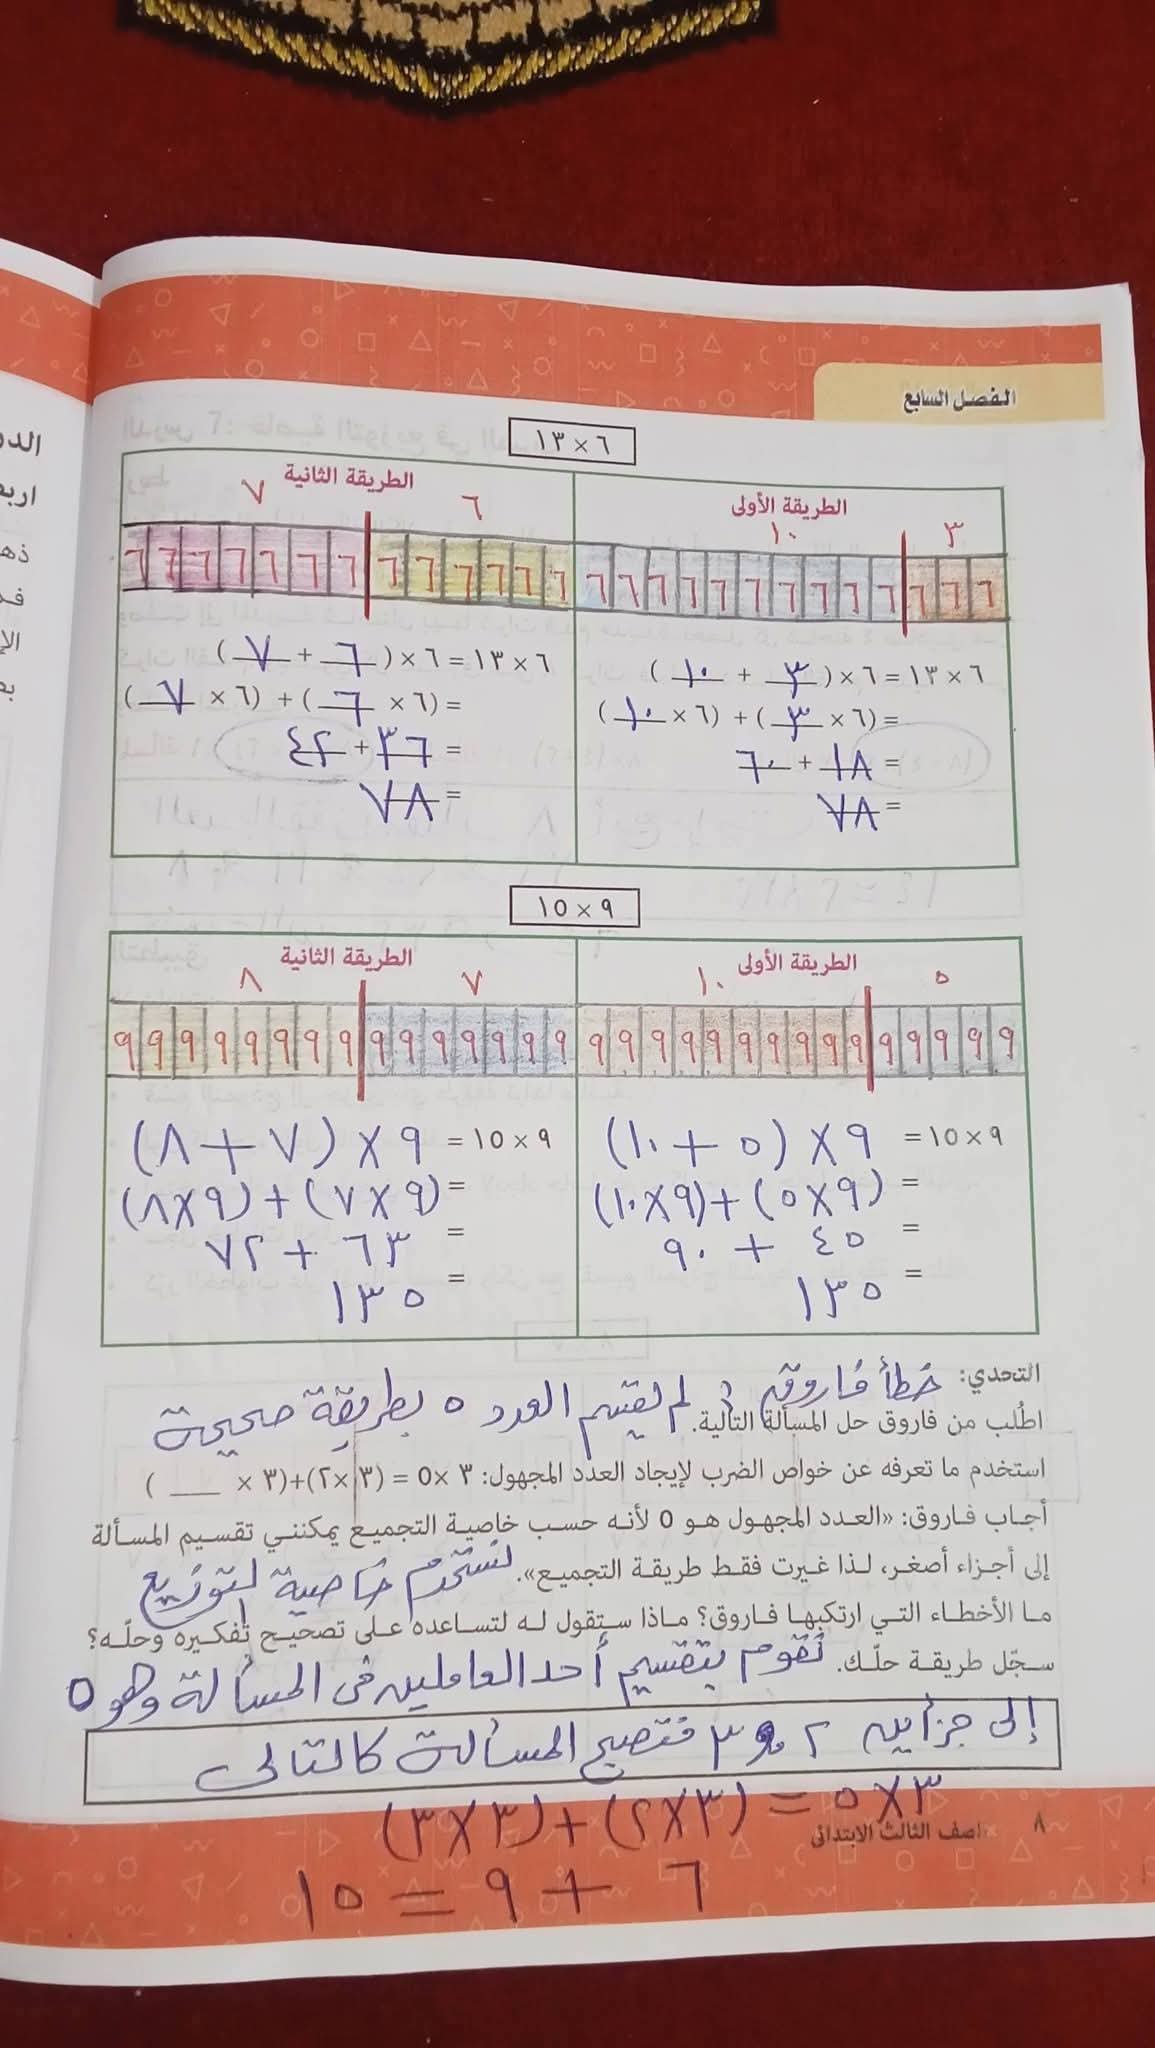 الفصل السابع
٦ × ١٣
الطريقة الأولى
٣ ١٠
٦ ٦ ٦ ٦ ٦ ٦ ٦ ٦ ٦ ٦ ٦ ٦ ٦
٦ × ١٣ = ٦ × (٣ + ١٠)
= (٦ × ٣) + (٦ × ١٠)
= ١٨ + ٦٠
= ٧٨
الطريقة الثانية
٦ ٧
٦ ٦ ٦ ٦ ٦ ٦ ٦ ٦ ٦ ٦ ٦ ٦ ٦
٦ × ١٣ = ٦ × (٦ + ٧)
= (٦ × ٦) + (٦ × ٧)
= ٣٦ + ٤٢
= ٧٨
٩ × ١٥
الطريقة الأولى
٥ ١٠
٩ ٩ ٩ ٩ ٩ ٩ ٩ ٩ ٩ ٩ ٩ ٩ ٩ ٩
٩ × ١٥ = ٩ × (٥ + ١٠)
= (٩ × ٥) + (٩ × ١٠)
= ٤٥ + ٩٠
= ١٣٥
الطريقة الثانية
٧ ٨
٩ ٩ ٩ ٩ ٩ ٩ ٩ ٩ ٩ ٩ ٩ ٩ ٩ ٩ ٩
٩ × ١٥ = ٩ × (٧ + ٨)
= (٩ × ٧) + (٩ × ٨)
= ٦٣ + ٧٢
= ١٣٥
التحدي:
خطأ فاروق: لم يقسم العدد ٥ بطريقة صحيحة
اطُلب من فاروق حل المسألة التالية.
استخدم ما تعرفه عن خواص الضرب لإيجاد العدد المجهول: ٣ × ٥ = (٣ × ٢) + (٣ × ___ )
أجاب فاروق: «العدد المجهول هو ٥ لأنه حسب خاصية التجميع يمكنني تقسيم المسألة
إلى أجزاء أصغر، لذا غيرت فقط طريقة التجميع».
نستخدم خاصية التوزيع
ما الأخطاء التي ارتكبها فاروق؟ ماذا ستقول له لتساعده على تصحيح تفكيره وحلّه؟
سجّل طريقة حلّك.
نقوم بتقسيم أحد العاملين فى المسألة وهو ٥
إلى جزأين ٢ و ٣ فتصبح المسألة كالتالى
٣ × ٥ = (٣ × ٢) + (٣ × ٣)
٨ الصف الثالث الابتدائى
٦ + ٩ = ١٥